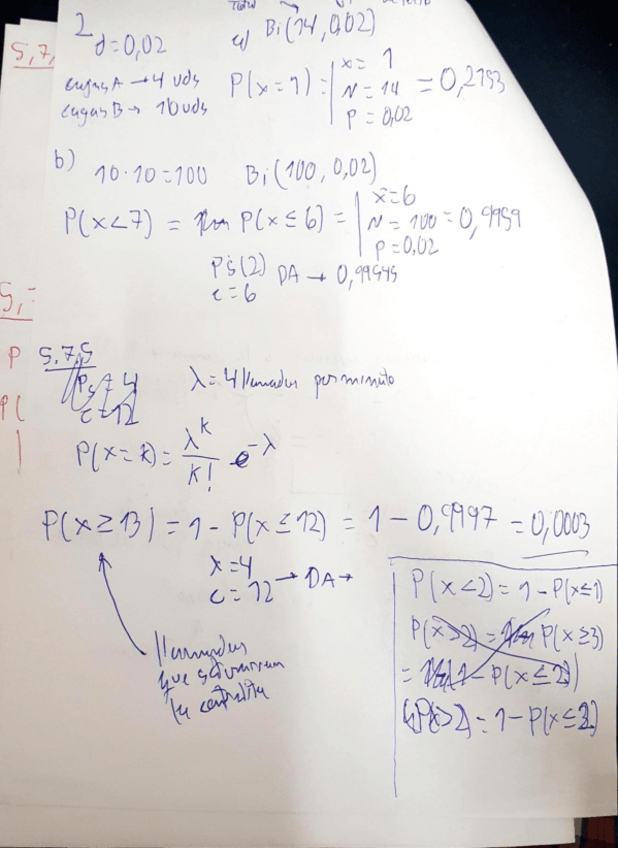 2
d=0,02
a) Bi(14,0,02)
5,7,
cugas A → 4 uds
cugas B → 10 uds
P(x=1) = | x= 1
N = 14
p = 0,02
= 0,2153
b) 10·10=100 Bi(100, 0,02)
P(x<7) = P(x≤6) = | x=6
N = 100
p=0,02
= 0,9959
Ps(2) DA → 0,99545
c=6
5,
5.7.5
Ps 4
c=12
λ=4 llamadas por minuto
P
P(
P(x=k) = λ^k / k! e^-λ
P(x≥13) = 1 - P(x≤12) = 1 - 0,9997 = 0,0003
λ=4
c=12 → DA →
llamadas
que
la centralita
P(x<2) = 1 - P(x≤1)
P(x>2) = P(x≥3)
= 1 - P(x≤2)
P(x>2) = 1 - P(x≤2)